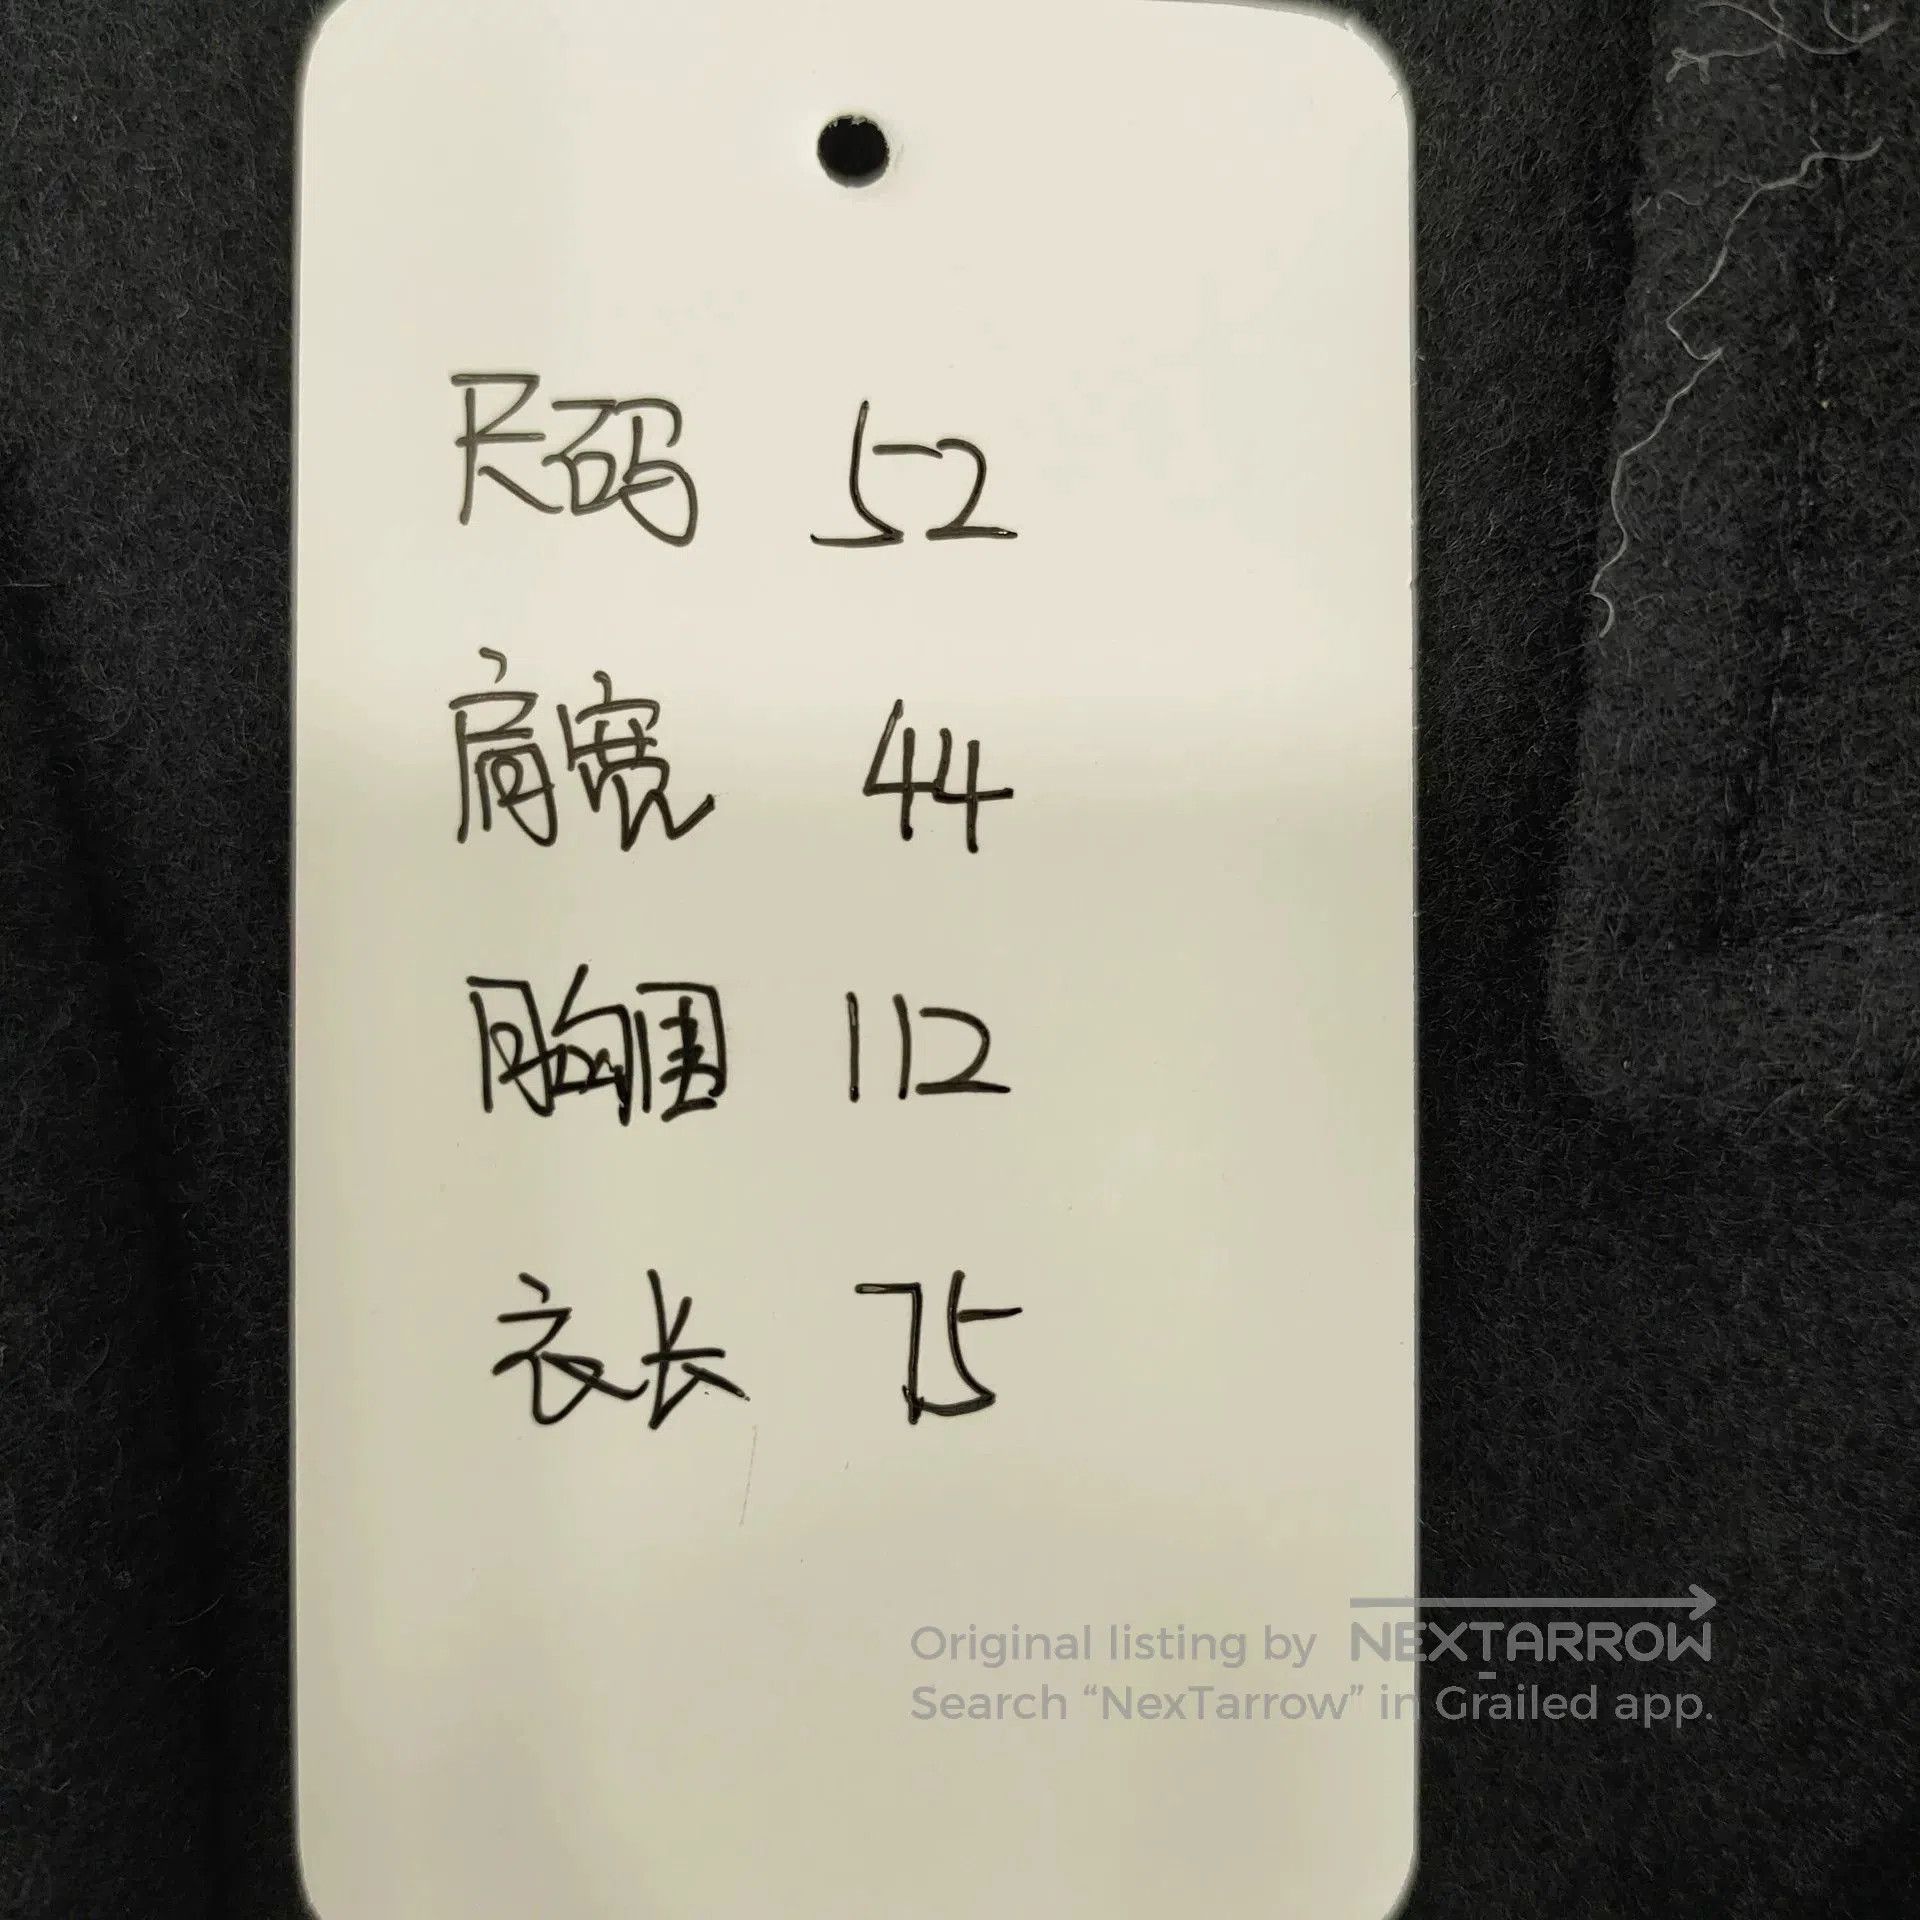 尺码 52
肩宽 44
胸围 112
衣长 75
Original listing by NEXTARROW
Search “NexTarrow” in Grailed app.